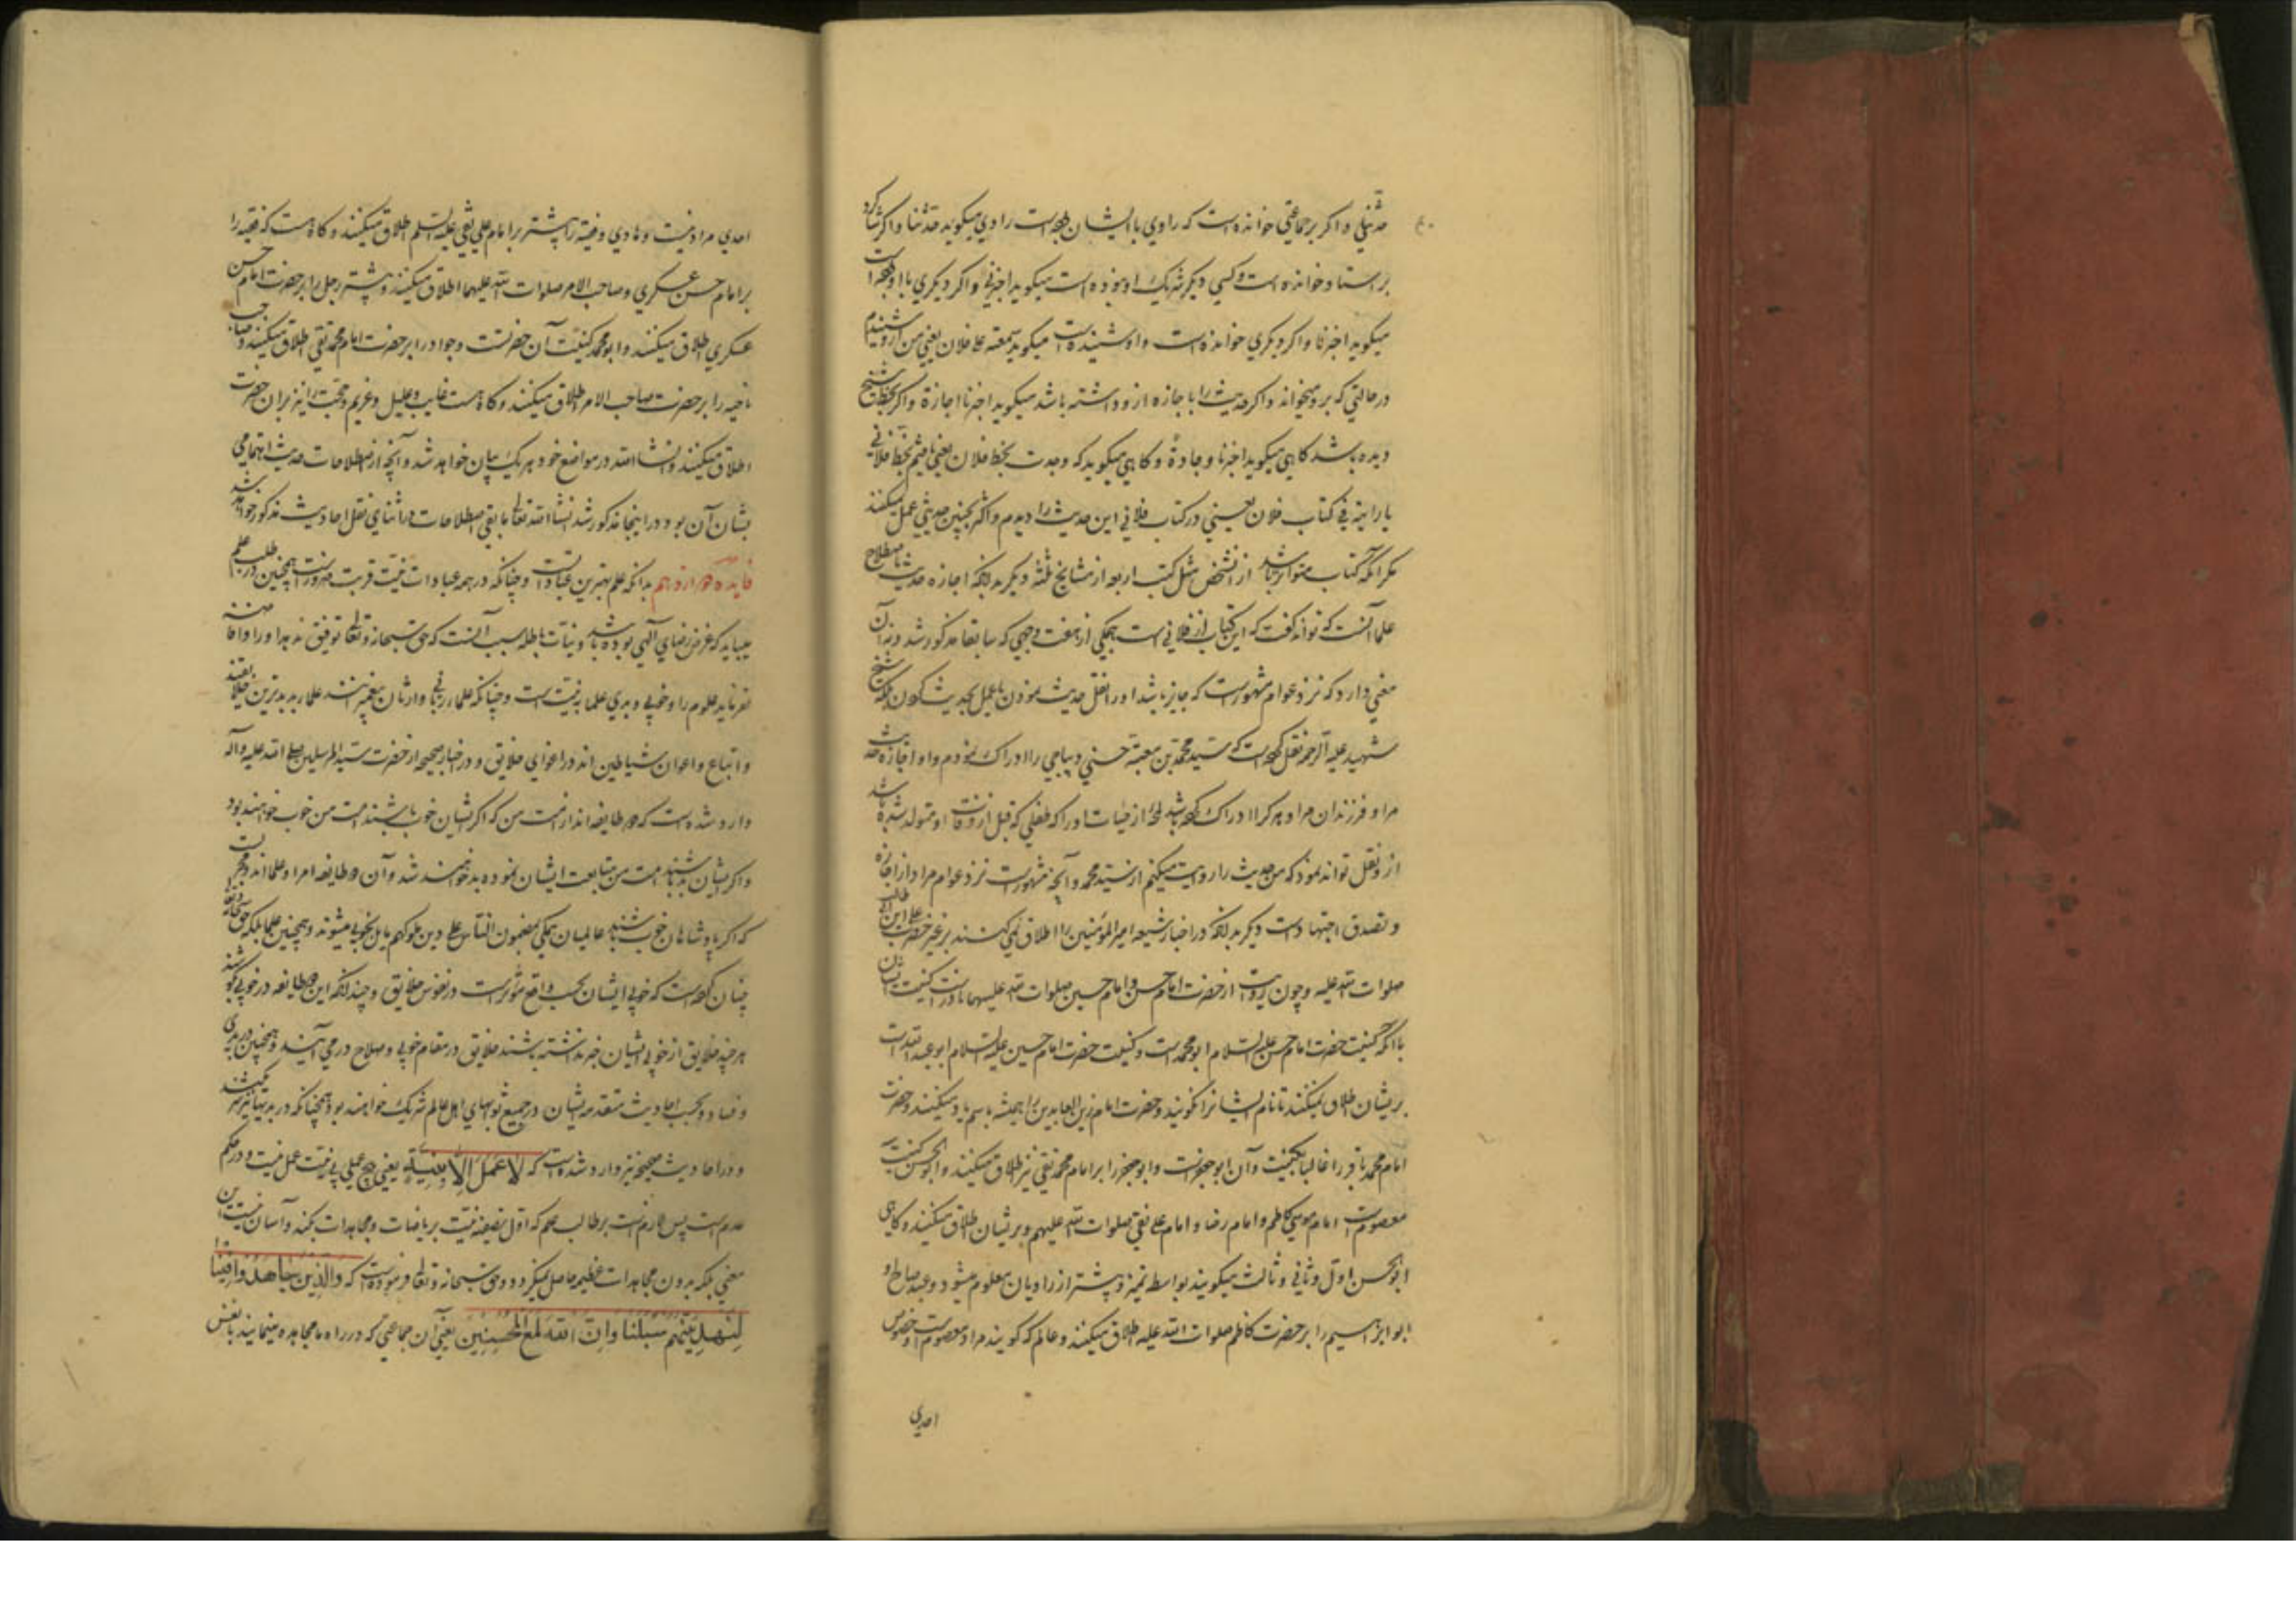 حدثني و اكر بر جماعتي خوانده است كه راوي با ايشان بوده است راوي ميكويد حدثنا و اكر شاكرد
بر استاد خوانده است و كسي ديكر شريك او نبوده است ميكويد اخبرني و اكر ديكري با او بوده است
ميكويد اخبرنا و اكر ديكري خوانده است و او شنيده است ميكويد سمعته علي فلان يعني من از او شنيدم
در حالتي كه بر او ميخواند و اكر حديث را با جازه از او داشته باشد ميكويد اخبرنا اجازة و اكر بخط شيخ
ديده باشد كاهي ميكويد اخبرنا وجادة و كاهي ميكويد كه وجدت بخط فلان يعني يافتم بخط فلاني
يا رايته في كتاب فلان يعني در كتاب فلاني اين حديث را ديدم و اكثر بچنين حديثي عمل نميكنند
مكر آنكه كتاب متواتر باشد از آن شخص مثل كتب اربعه از مشايخ ثلثه ديكر بدانكه اجازه حديث باصطلاح
علما آنست كه تواند كفت كه اين كتاب از فلاني است بيكي از هفت وجهي كه سابقا مذكور شد و نه آن
معني دارد كه نزد عوام مشهور است كه جايز باشد او را نقل حديث نمودن يا عمل بحديث كردن بلكه شيخ
شهيد عليه الرحمه نقل كرده است كه سيد محمد بن معية حسني ديباجي را ادراك نمودم و او اجازه حديث
مرا و فرزندان مرا و هر كه را ادراك كرده باشد لحظه از حيات او را كه طفلي كه قبل از وفات او متولد شده باشد
از او نقل تواند نمود كه من حديث را روايت ميكنم از سيد محمد و آنچه مشهور است نزد عوام مراد از اجازه
و تصدق اجتهاد است ديكر بدانكه در اخبار شيعه امير المؤمنين را اطلاق نمي كنند بر غير حضرت علي ابن ابي طالب
صلوات الله عليه و چون روايت از حضرت امام حسن و امام حسين صلوات الله عليهما نادر است كنيت ايشان
با آنكه كنيت حضرت امام حسن عليه السلام ابو محمد است و كنيت حضرت امام حسين عليه السلام ابو عبد الله است
بر ايشان اطلاق نميكنند تا نام ايشانرا نكويند و حضرت امام زين العابدين را هميشه باسم ياد ميكنند و حضرت
امام محمد باقر را غالبا بكنيت و آن ابو جعفر است و ابو جعفر را بر امام محمد تقي نيز اطلاق ميكنند و ابو الحسن كنيت
معصوم است امام موسي كاظم و امام رضا و امام علي نقي صلوات الله عليهم و بر ايشان اطلاق ميكنند و كاهي
ابو الحسن اول و ثاني و ثالث ميكويند بواسطه تميز و بيشتر از راويان معلوم ميشود و عبد صالح و
ابو ابراهيم را بر حضرت كاظم صلوات الله عليه اطلاق ميكنند و عالم كه كويند مراد معصوم است و خصوص
احدي
احدي مراد نيست و هادي و فقيه را بيشتر بر امام علي نقي عليه السلم اطلاق ميكنند و كاه هست كه فقيه را
بر امام حسن عسكري و صاحب الامر صلوات الله عليهما اطلاق ميكنند و بيشتر رجل را بر حضرت امام حسن
عسكري اطلاق ميكنند و ابو محمد كنيت آن حضرتست و جواد را بر حضرت امام محمد تقي اطلاق ميكنند و صاحب
ناحيه را بر حضرت صاحب الامر اطلاق ميكنند و كاه هست غايب و عليل و غريم و حجت را نيز بر آن حضرت
اطلاق ميكنند و انشاالله در مواضع خود هر يك بيان خواهد شد و آنچه از اصطلاحات حديث اهتمامي
بشان آن بود در اينجا مذكور شد انشاالله تعالي ما بقي اصطلاحات در اثناي نقل احاديث مذكور خواهد شد
فايده دوازدهم بدانكه علم بهترين عبادات است و چنانكه در همه عبادات نيت قربت ضرور است همچنين در طلب علم
ميبايد كه غرض رضاي الهي بوده باشد و نيات باطله سبب آنست كه حق سبحانه و تعالي توفيق ندهد او را و افاضه
نفرمايد علوم را و خوبي و بدي علما به نيت است و چنانكه علماء رباني وارثان پيغمبرند علماء بد بدترين خلايقند
و اتباع و اعوان شياطين اند در اغواي خلايق و در اخبار صحيحه از حضرت سيد المرسلين صلي الله عليه و آله
وارد شده است كه دو طايفه اند از امت من كه اكر ايشان خوب باشند امت من خوب خواهند بود
و اكر ايشان بد باشند امت من متابعت ايشان نموده بد خواهند شد و آن دو طايفه امرا و علما اند و مجرب است
كه اكر پادشاهان خوب باشند عالميان همكي بمضمون الناس علي دين ملوكهم مايل بخوبي ميشوند و همچنين علما بلكه حق سبحانه و تعالي
چنان كرده است كه خوبي ايشان بحسب واقع مؤثر است در نفوس خلايق و چندانكه اين دو طايفه در خوبي كوشند
هر چند خلايق از خوبي ايشان خبر نداشته باشند خلايق در مقام خوبي و صلاح در مي آيند و همچنين در بدي
و فساد و بحسب احاديث متقدمه ايشان در جميع ثوابهاي اهل عالم شريك خواهند بود همچنانكه در بديها نيز شريكند
و در احاديث صحيحه نيز وارد شده است كه لا عَمَلَ اِلّا بِنِيَّةٍ يعني هيچ عملي بي نيت عمل نيست و در حكم
عدم است پس لازم است بر طالب علم كه اول تصفيه نيت برياضات و مجاهدات بكند و آسان نيست اين
معني بلكه بدون مجاهدات عظيمه حاصل نميكردد و حق سبحانه و تعالي فرموده است كه وَالَّذينَ جاهَدُوا فينا
لَنَهْدِيَنَّهُم سُبُلَنا وَاِنَّ اللهَ لَمَعَ المُحْسِنينَ يعني آن جماعتي كه در راه ما مجاهده مينمايند با نفس